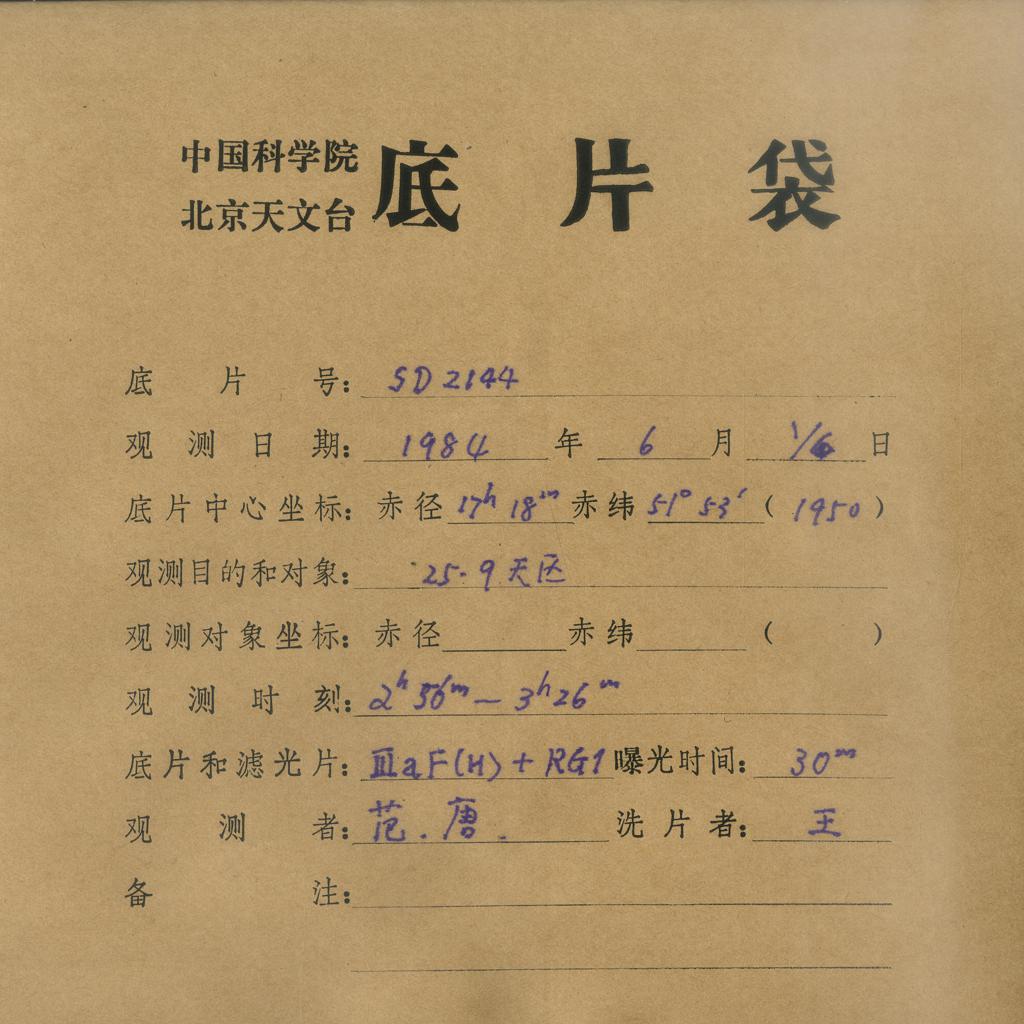 中国科学院
北京天文台
底片袋
底片号：SD2144
观测日期：1984年6月1/6日
底片中心坐标：赤径17h 18m赤纬51° 53′（1950）
观测目的和对象：25·9天区
观测对象坐标：赤径 赤纬 （ ）
观测时刻：2h 56m — 3h 26m
底片和滤光片：ⅢaF(H)+RG1 曝光时间：30m
观测者：范.唐. 洗片者：王
备注：